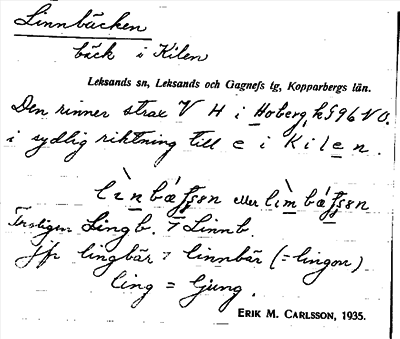 Linnbäcken
bäck i Kilen
Leksands sn, Leksands och Gagnefs tg, Kopparbergs län.
Den rinner strax V H i Hoberg, k 596 V O.
i sydlig riktning till e i Kilen.
eller
Troligen Lingb. > Linnb.
jfr lingbär > linnbär (= lingon)
ling = ljung.
ERIK M. CARLSSON, 1935.